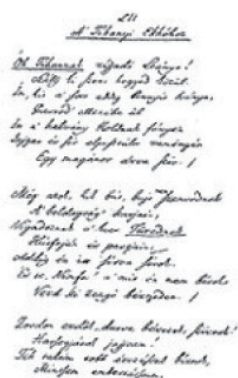 LIII
A Tihanyi Ekhóhoz
Óh Tihannak rijjadó leánya!
Szállj ki szent hegyed közűl.
Ím, kit a sors eddig annyit hánya,
Partod ellenébe űl
Itt a halvány holdnak fényén
Jajgat és sír elpusztúlt reményén
Egy magános árva szív.
Míg azok, kik bút, bajt szenvednek
A boldogság karjain,
Vígadoznak a kies Fürednek
Kútfején és partjain;
Addig én itt sírva sírok.
És te, Nimfa! a mit én nem bírok,
Verd ki zengő bérceden.
Zordon erdők, durva bércek, szirtok!
Harsogjátok jajjaim!
Tik talán több érzéssel bírtok,
Mintsem embertársaim,